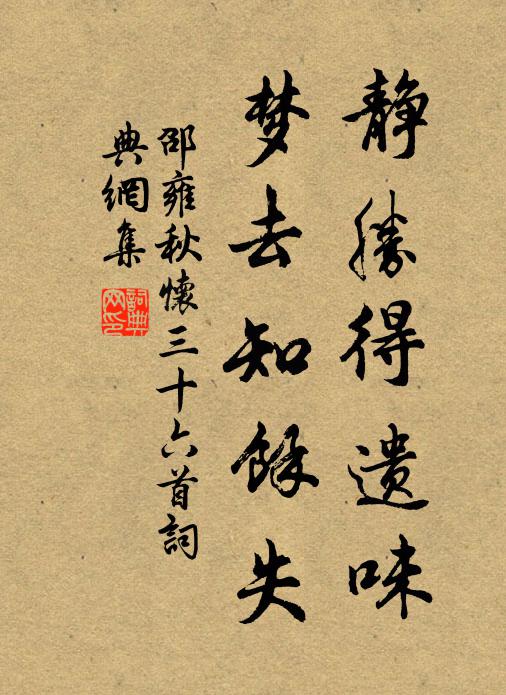 静勝得遗味
梦去知餘失
邵雍秋懷三十六首詞
典網集
詞典网印